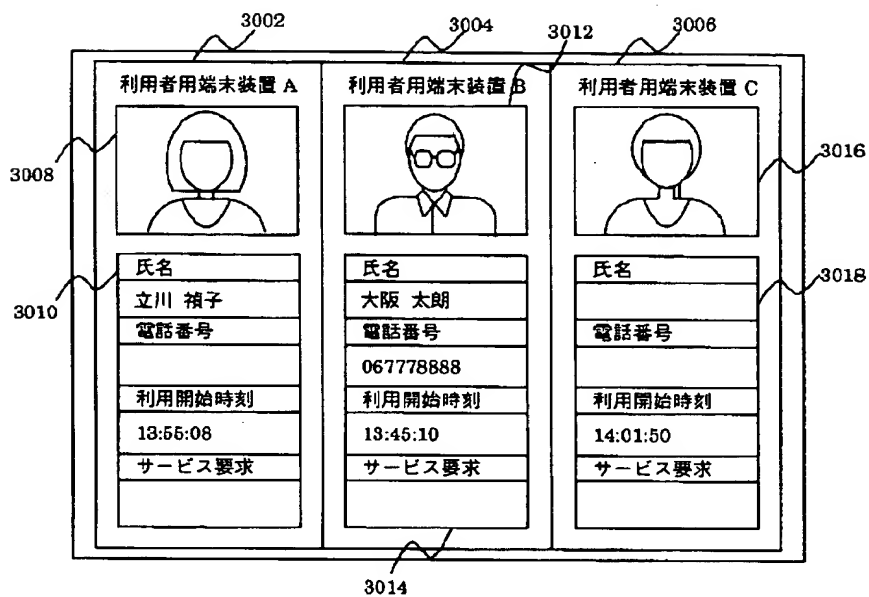 3002
3004
3012
3006
利用者用端末装置 A
利用者用端末装置 B
利用者用端末装置 C
3008
3016
3010
3018
氏名
立川 禎子
電話番号
利用開始時刻
13:55:08
サービス要求
氏名
大阪 太朗
電話番号
067778888
利用開始時刻
13:45:10
サービス要求
氏名
電話番号
利用開始時刻
14:01:50
サービス要求
3014